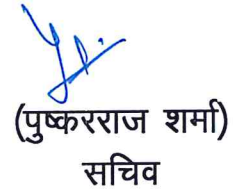 (पुष्करराज शर्मा)
सचिव